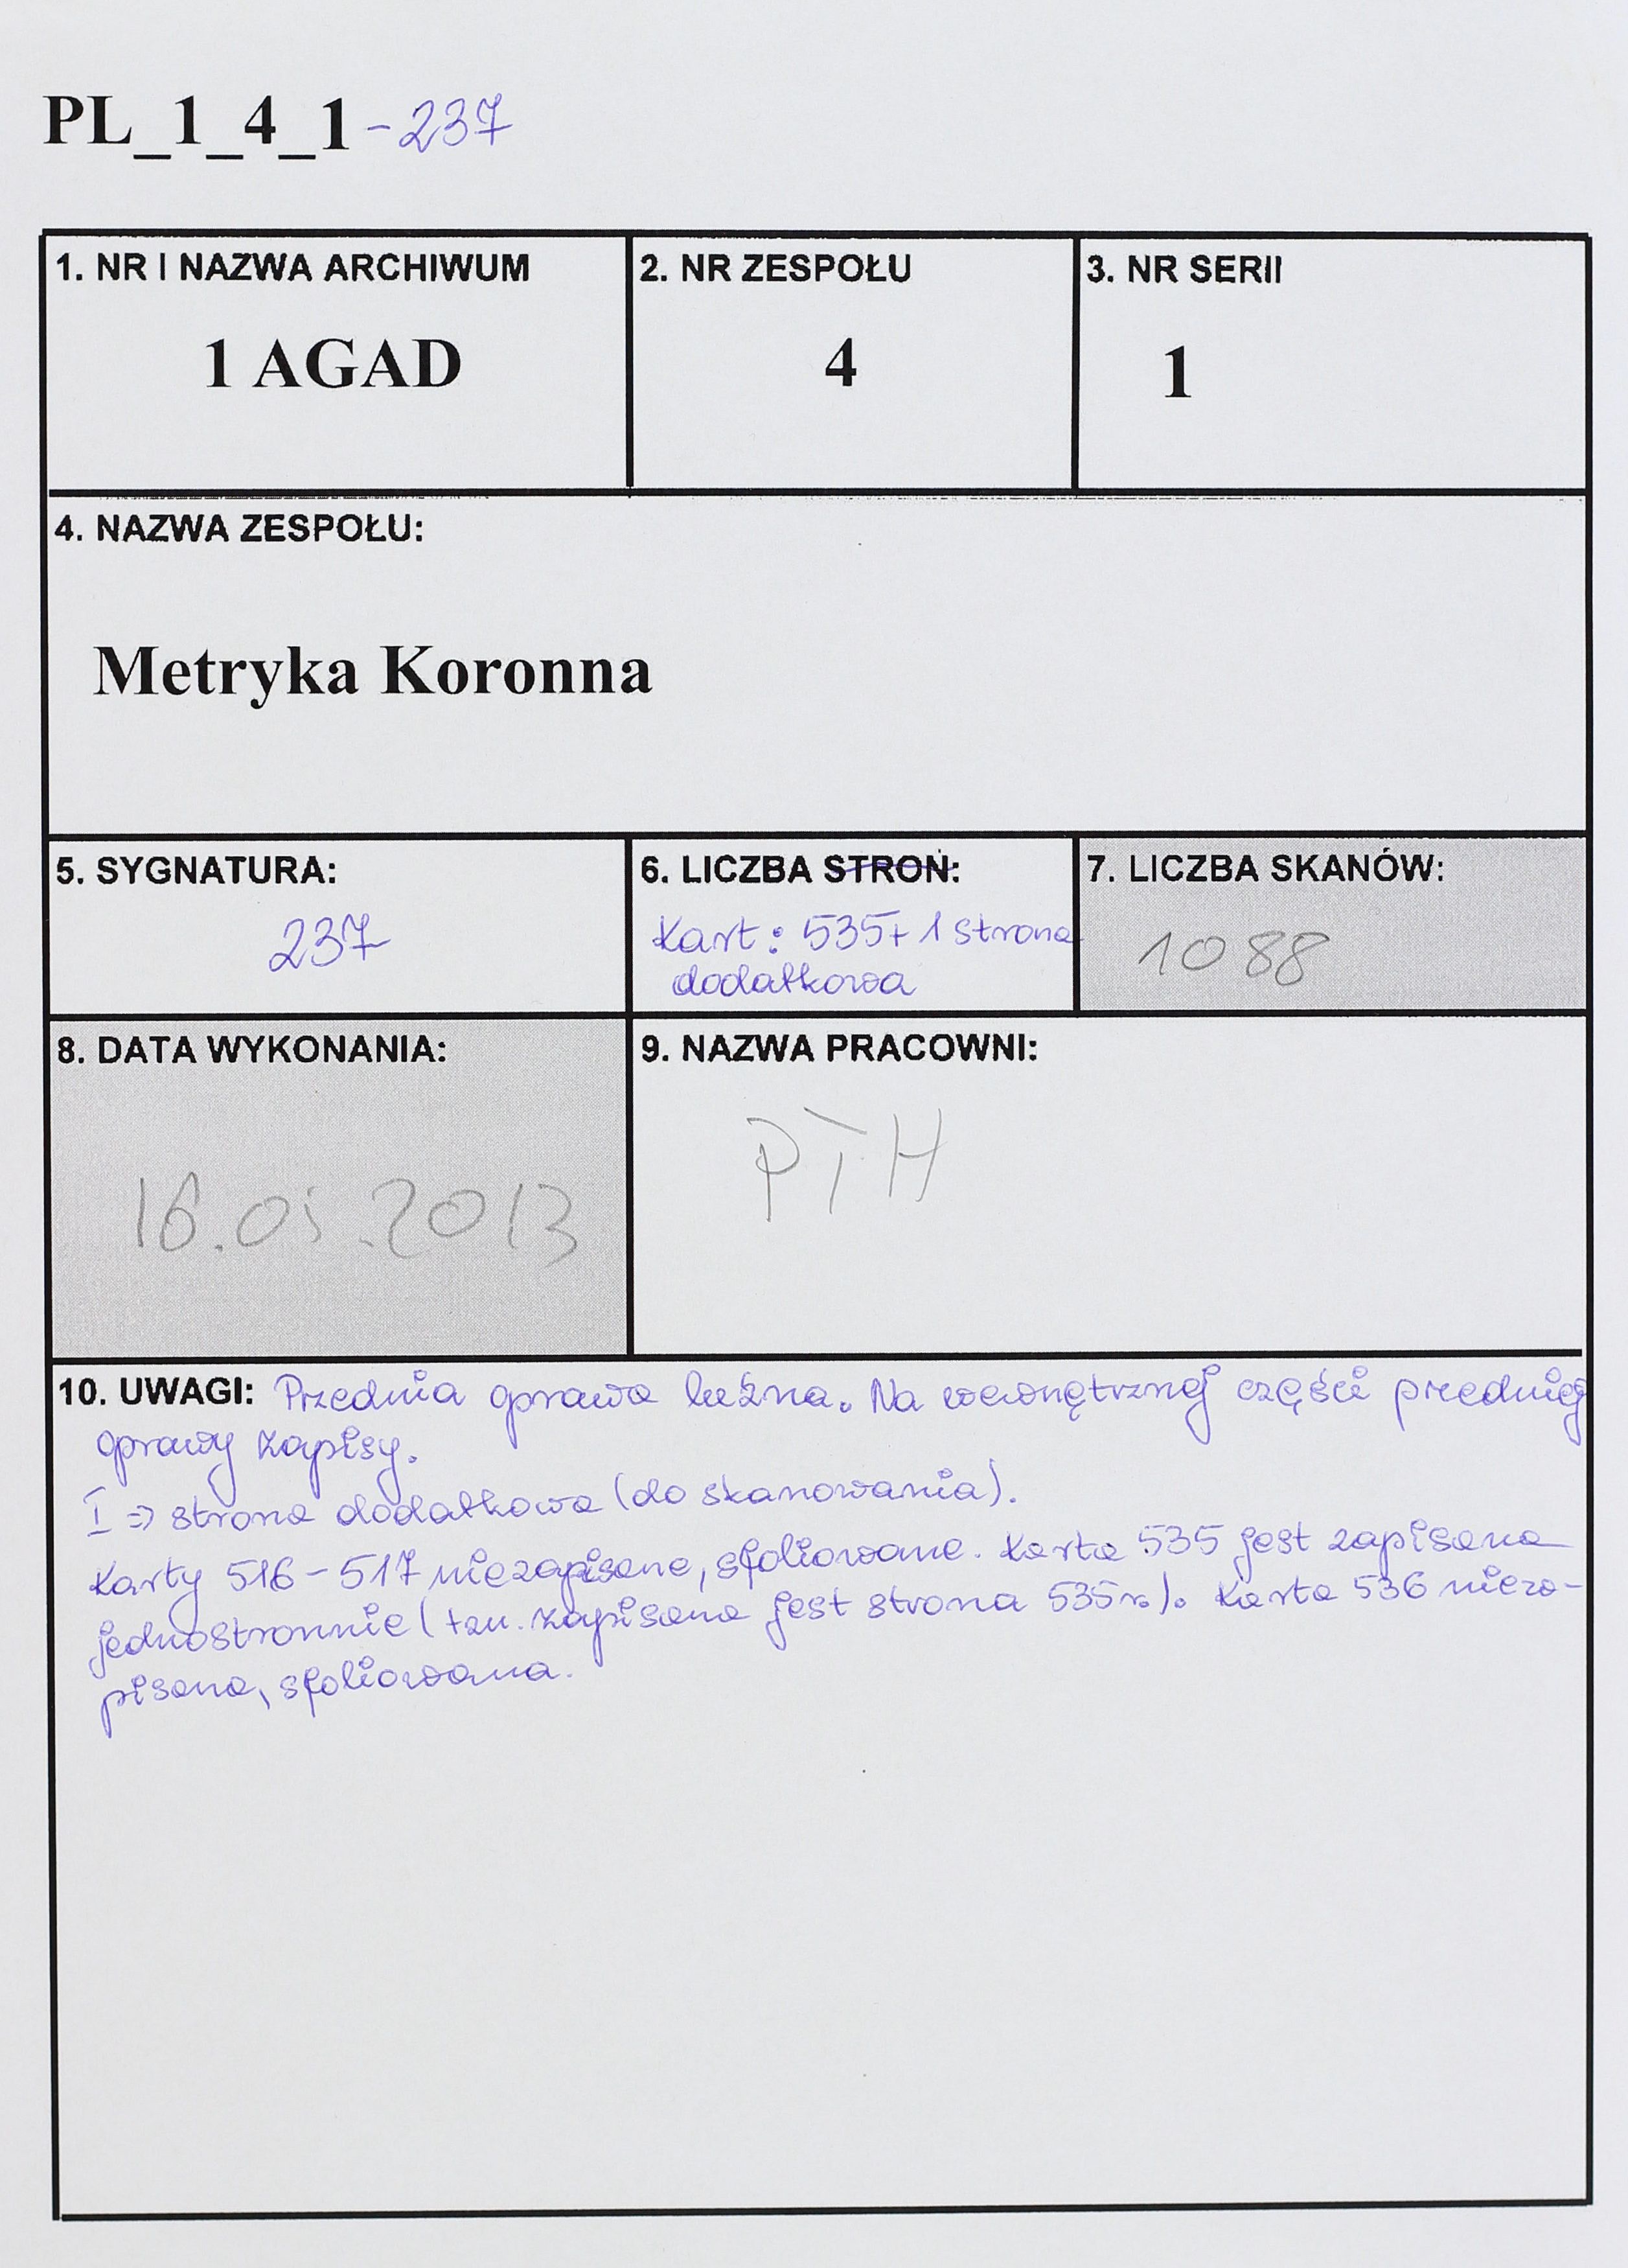 PL_1_4_1-237
1. NR I NAZWA ARCHIWUM
1 AGAD
2. NR ZESPOŁU
4
3. NR SERII
1
4. NAZWA ZESPOŁU:
Metryka Koronna
5. SYGNATURA:
237
6. LICZBA STRON:
Kart: 535+1 strona
dodatkowa
7. LICZBA SKANÓW:
1088
8. DATA WYKONANIA:
16.05.2013
9. NAZWA PRACOWNI:
10. UWAGI: Przednia oprawa luźna. Na wewnętrznej części przedniej
oprawy zapisy.
I => strona dodatkowa (do skanowania).
Karty 516-517 niezapisane, sfoliowane. Karta 535 jest zapisana
jednostronnie (tzn. zapisana jest strona 535r.). Karta 536 nieza-
pisana, sfoliowana.